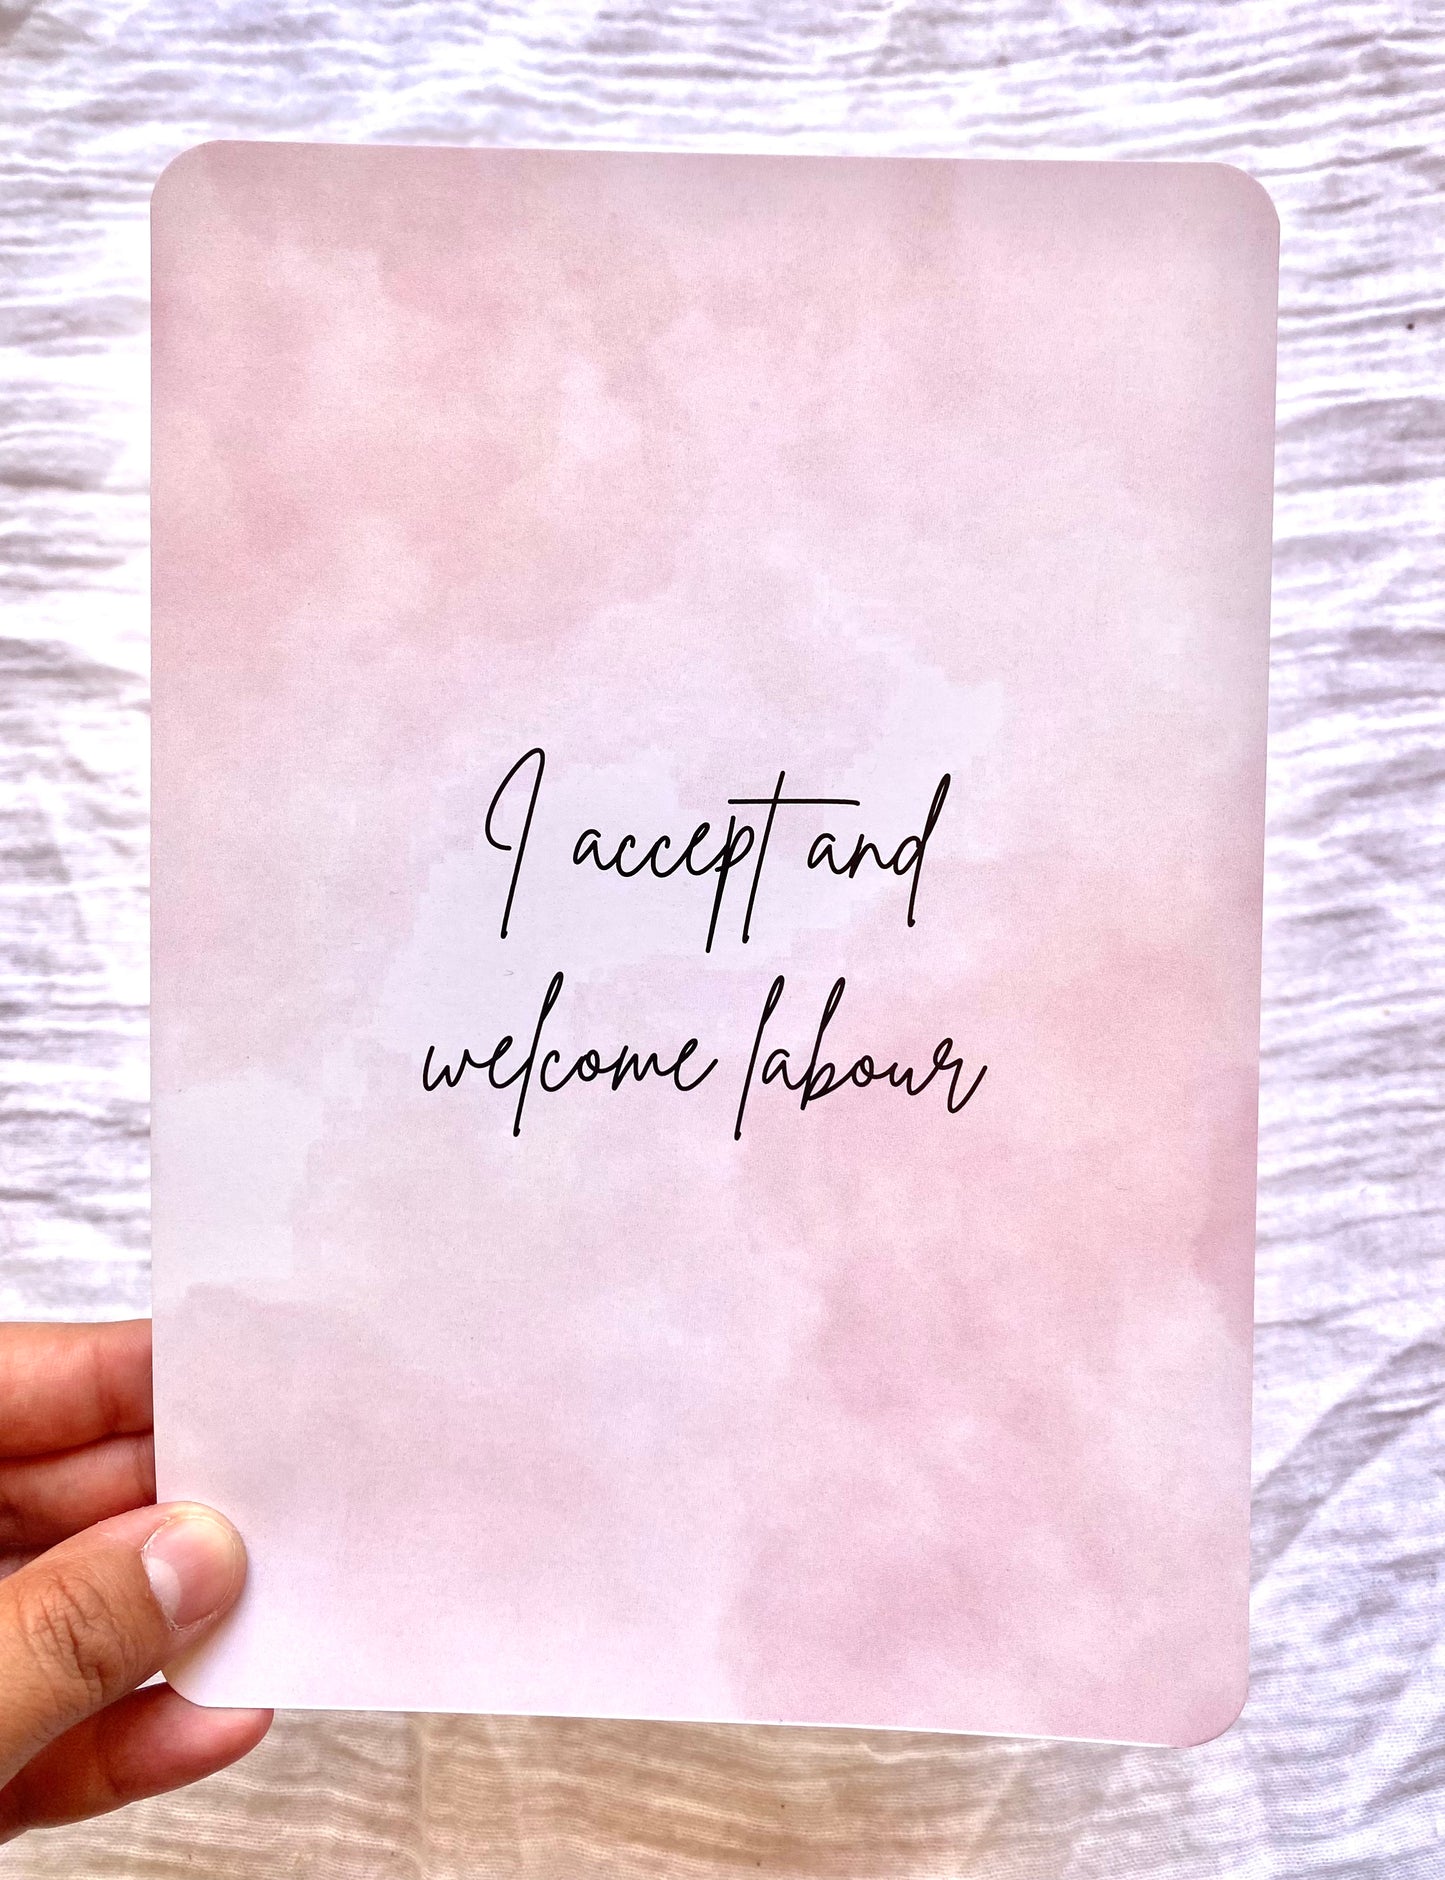 I accept and
welcome labour